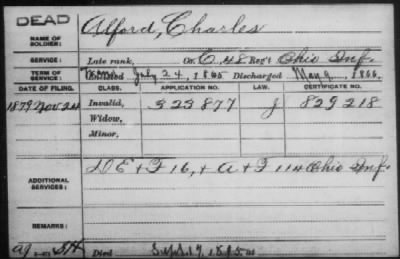 DEAD
NAME OF SOLDIER: Alford, Charles
SERVICE: Late rank, Co. C, 48 Reg't Ohio Inf.
TERM OF SERVICE: Enlisted July 24, 1865 Discharged May 9, 1866.
DATE OF FILING. CLASS. APPLICATION NO. LAW. CERTIFICATE NO.
1879 Nov 24 Invalid, 323877 J 829218
Widow,
Minor,
ADDITIONAL SERVICES: D E + F 16, + A + F 114 Ohio Inf.
REMARKS:
Died